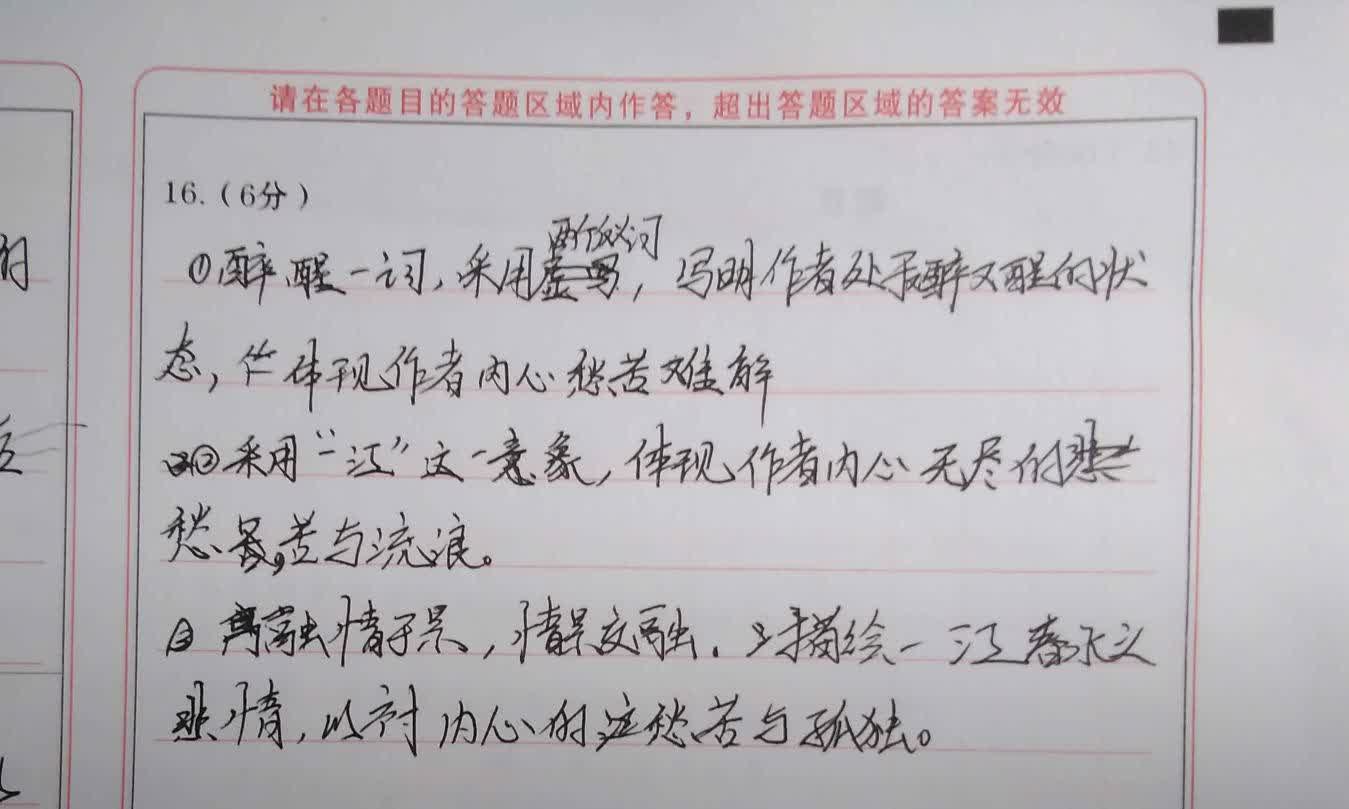 请在各题目的答题区域内作答，超出答题区域的答案无效
16.（6分）
两个动词
①醉醒一词，采用，写明作者处于醉又醒的状
态，体现作者内心愁苦难解
②采用“一江”这一意象，体现作者内心无尽的
愁苦与流浪。
③融情于景，情景交融．描绘一江春水之
悲情，以衬内心的愁苦与孤独。
的